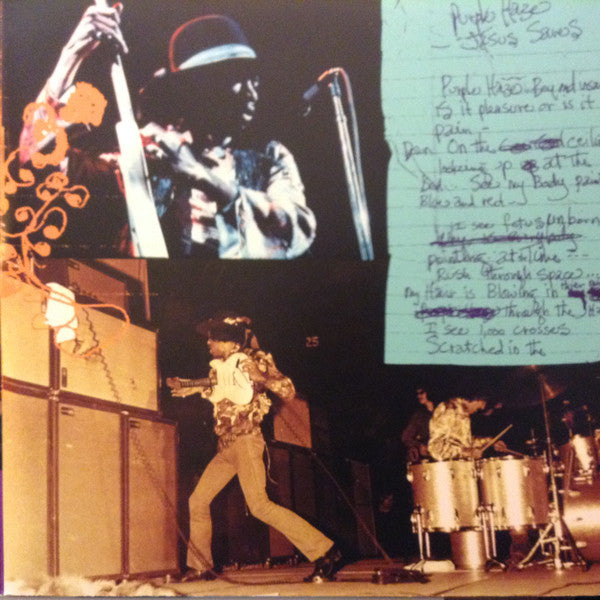 Purple Haze
– Jesus Saves
Purple Haze - Beyond insa
is it pleasure or is it
pain |
Down On the ceili
looking up at The
Bed - See my Body pain
Blue and red -
I see fetus unborn
pointing at Time ---
Rush through space ---
my Hair is Blowing in
through the
I see 1,000 crosses
Scratched in the
25